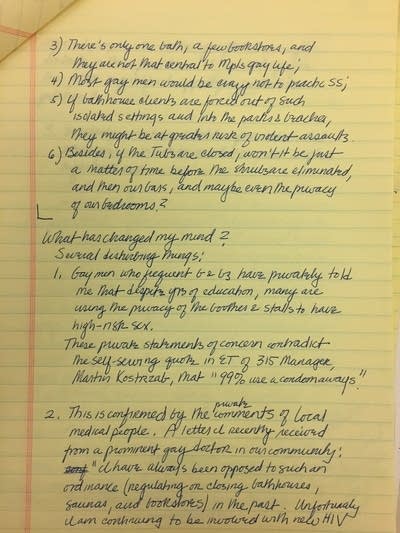 3) There's only one bath, a few bookstores, and
they are not that central to Mpls gay life;
4) Most gay men would be crazy not to practice SS;
5) If bathhouse clients are forced out of such
isolated settings and into the parks & beaches,
they might be at greater risk of violent assaults.
6) Besides, if the Tubs are closed, won't it be just
a matter of time before the shrubs are eliminated,
and then our bars, and maybe even the privacy
of our bedrooms?
What has changed my mind?
Several disturbing things:
1. Gay men who frequent b & b's have privately told
me that despite yrs of education, many are
using the privacy of the booths & stalls to have
high-risk sex.
These private statements of concern contradict
the self-serving quote in ET of 315 Manager,
Martin Kostrzab, that "99% use a condom always."
2. This is confirmed by the private comments of local
medical people. A letter I recently received
from a prominent gay doctor in our community:
"I have always been opposed to such an
ordinance (regulating or closing bathhouses,
saunas, and bookstores) in the past. Unfortunately
I am continuing to be involved with new HIV